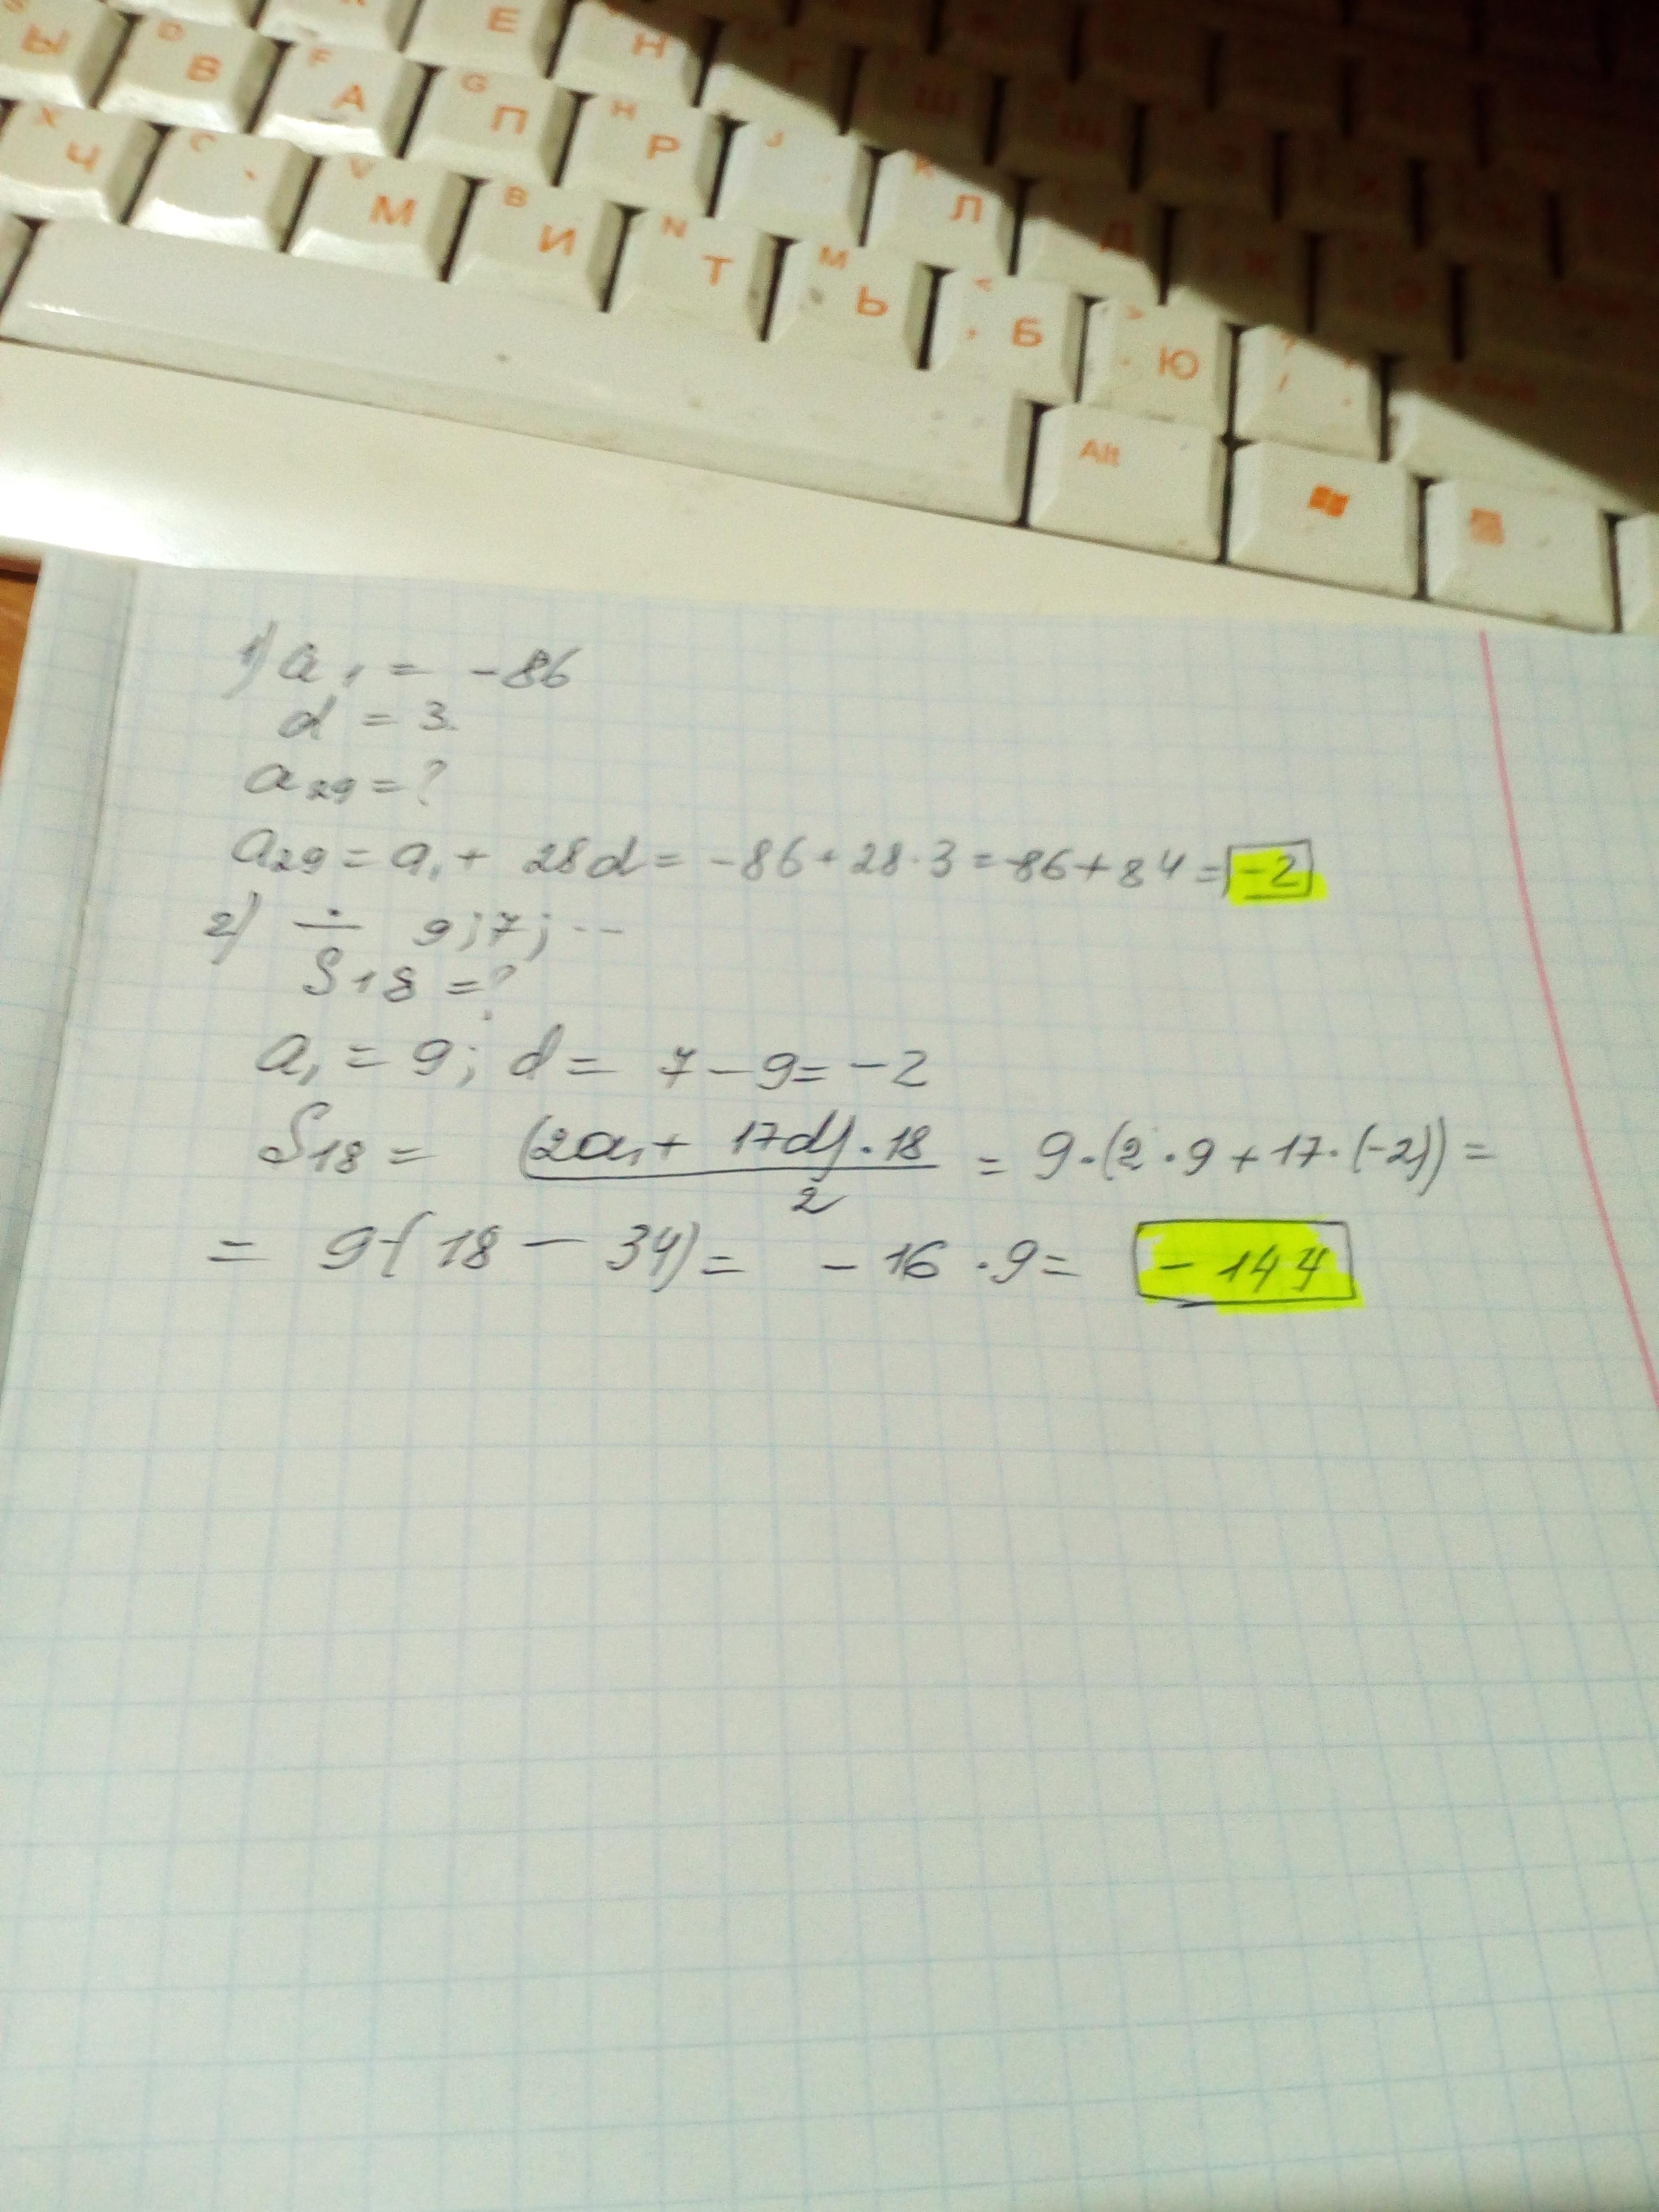 Е Н
Ы D В F А G П H Р J К Л Д
X Ч С V М B И N Т М Ь < , Б > . Ю ? /
Alt
1) a₁ = -86
d = 3.
a₂₉ = ?
a₂₉ = a₁ + 28d = -86 + 28·3 = -86 + 84 = -2
2) ÷ 9; 7; ...
S₁₈ = ?
a₁ = 9; d = 7 - 9 = -2
S₁₈ = (2a₁ + 17d)·18 / 2 = 9·(2·9 + 17·(-2)) =
= 9·(18 - 34) = -16·9 = -144